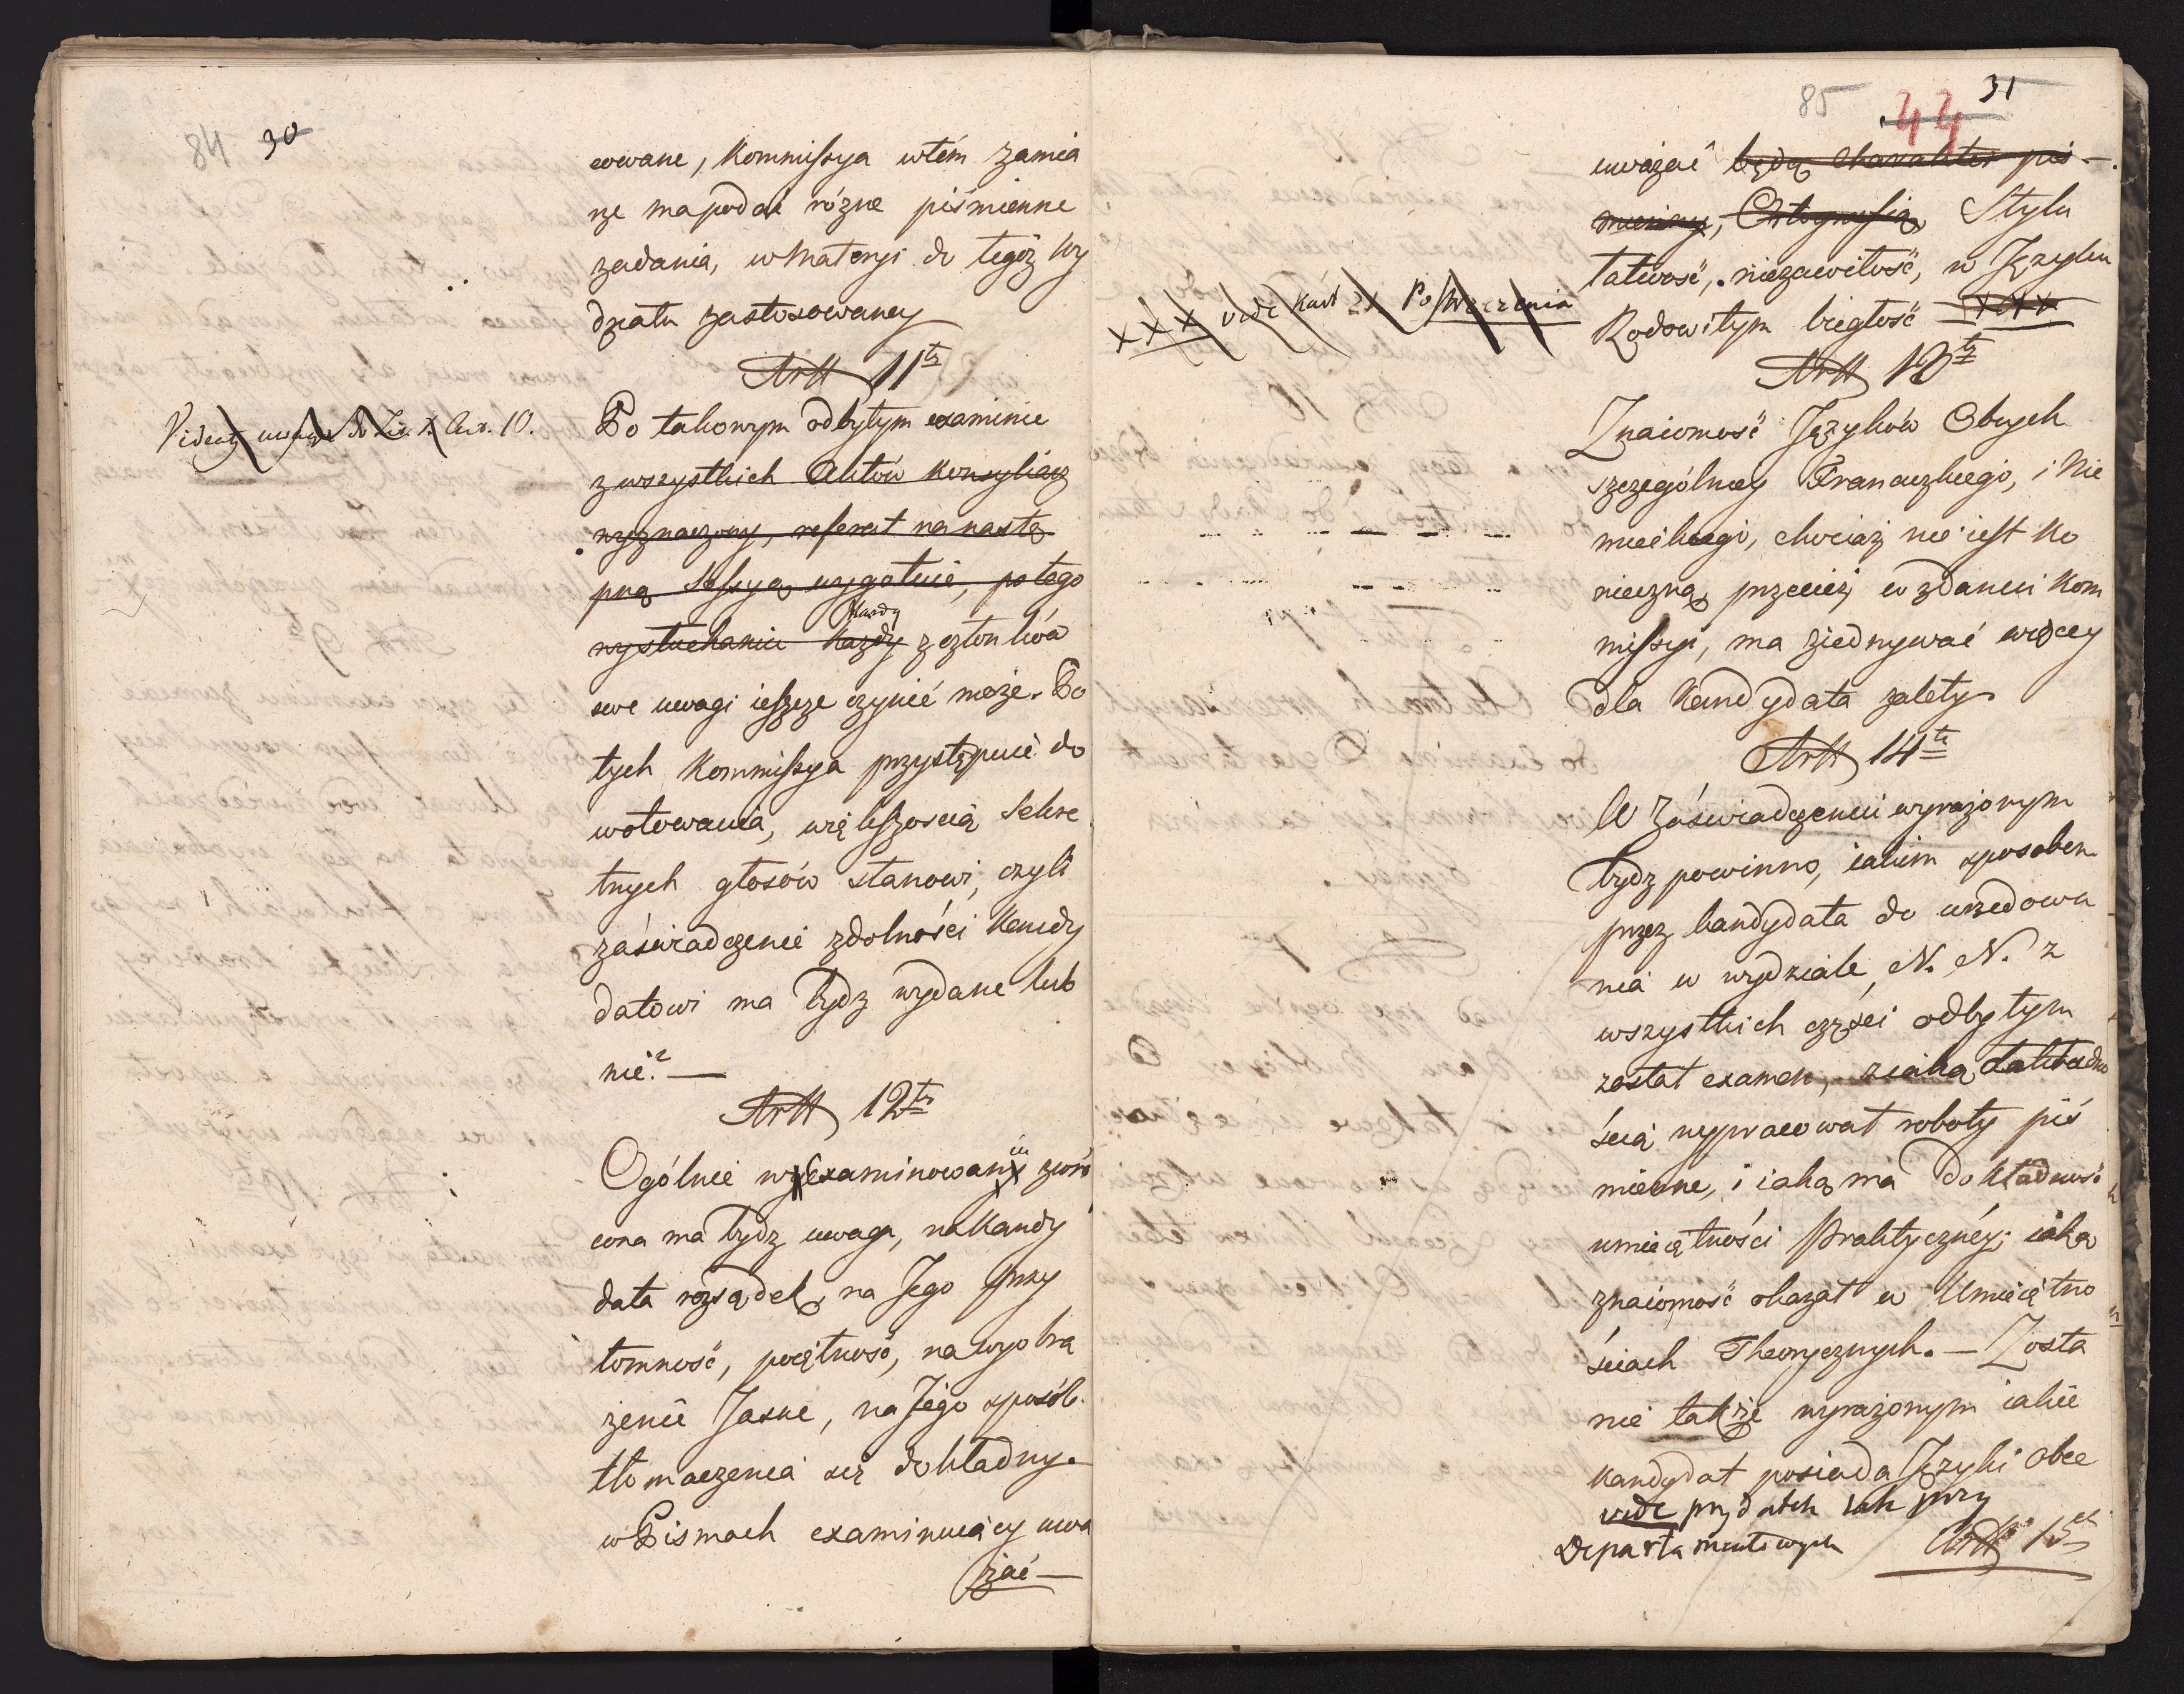 84 30
cowane, Kommissya wtém zamia
rze ma podać różne piśmienne
zadania, w Materyi do tegóż wy
działu zastosowaney
Artt 11ty
Po takowym odbytym examinie
z wszystkich Aktów Konsyliarz
wyznaczony, referat na nastę
pną Sessyą wygotuie, po tego
wysłuchaniu każdy każdy z członków
swe uwagi ieszcze czynić może. Po
tych Kommissya przystępuie do
wotowania, większoscią Sekre
tnych głosów stanowi, czyli
zaświadczenie zdolności Kandy
datowi ma bydz wydane lub
nie? —
Artt 12ty
Ogólnie wy Examinowaniu zwró
cona ma bydz uwaga, na Kandy
data rozsądek, na Jego przy
tomność, poiętność, na wyobra
żenie Jasne, na Jego sposób
tłomaczenia się dokładny.
w Pismach examinuiący uwa
żać —
Art. 10.
85 44 31
uważać będą Charakter piś
mienny, Ortografią, Stylu
łatwość, niezawiłość, w Języku
Rodowitym biegłość xxx
xxx vide Kart 21 Postrzeżenia
Artt 13ty
Znaiomość Języków Obcych
szczególniey Francuzkiego, i Nie
mieckiego, chociaż nie iest ko
nieczną, przecież w zdaniu Kom
missyi, ma ziednywać więcey
dla Kandydata zalety.
Artt 14ty
W Zaświadczeniu wyrażonym
bydz powinno, iakim sposobem
przez kandydata do urzędowa
nia w wydziale, N. N. z
wszystkich części odbytym
został examen, z iaką dokładno
ścią wypracował roboty piś
mienne, i iaką ma dokładność
umieiętności praktyczney; iaką
znaiomość okazał w Umieiętno
ściach Theorycznych. — Zosta
nie także wyrażonym iakie
Kandydat posiada Języki obce
vide przydatek iak przy
Departamentowych
Artt 15